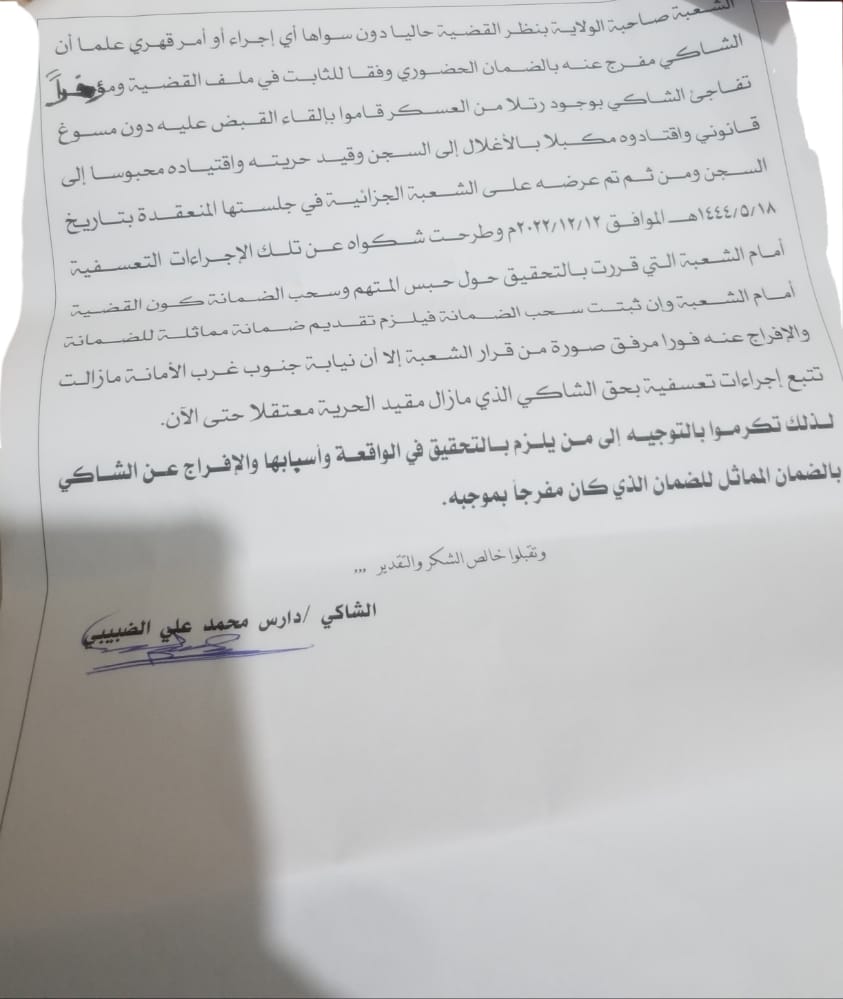 الشعبة صاحبة الولاية بنظر القضية حاليا دون سواها أي إجراء أو أمر قهري علما أن
الشاكي مفرج عنه بالضمان الحضوري وفقا للثابت في ملف القضية ومؤخراً
تفاجئ الشاكي بوجود رتلا من العسكر قاموا بإلقاء القبض عليه دون مسوغ
قانوني واقتادوه مكبلا بالأغلال إلى السجن وقيد حريته واقتياده محبوسا إلى
السجن ومن ثم تم عرضه على الشعبة الجزائية في جلستها المنعقدة بتاريخ
١٤٤٤/٥/١٨هـ الموافق ٢٠٢٢/١٢/١٢م وطرحت شكواه عن تلك الإجراءات التعسفية
أمام الشعبة التي قررت بالتحقيق حول حبس المتهم وسحب الضمانة كون القضية
أمام الشعبة وان ثبتت سحب الضمانة فيلزم تقديم ضمانة مماثلة للضمانة
والإفراج عنه فورا مرفق صورة من قرار الشعبة إلا أن نيابة جنوب غرب الأمانة مازالت
تتبع إجراءات تعسفية بحق الشاكي الذي مازال مقيد الحرية معتقلا حتى الآن.
لذلك تكرموا بالتوجيه إلى من يلزم بالتحقيق في الواقعة وأسبابها والإفراج عن الشاكي
بالضمان المماثل للضمان الذي كان مفرجاً بموجبه.
وتقبلوا خالص الشكر والتقدير ...
الشاكي /دارس محمد علي الضبيبي